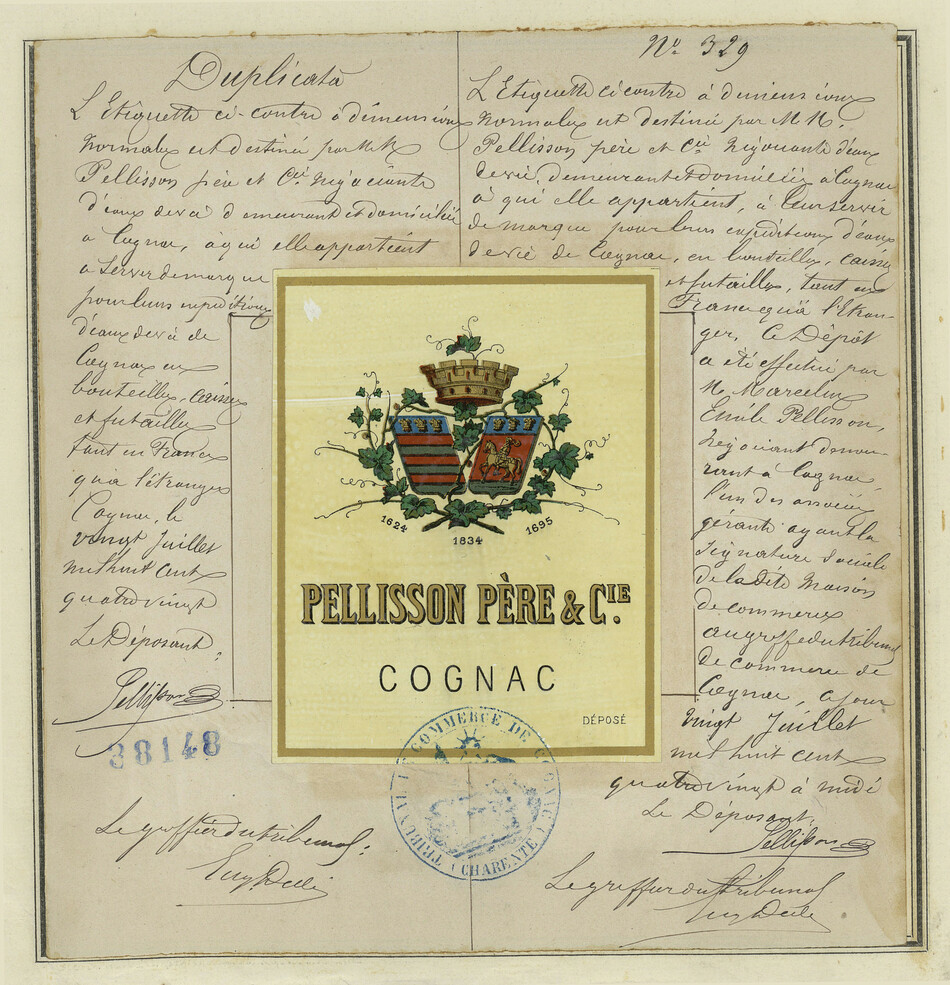 Duplicata
L'Etiquette ci-contre à dimensions
Normales est destinée par M.M.
Pellisson père et Cie Négociants
d'eaux de vie demeurant et domiciliés
à Cognac, à qui elle appartient
à servir de marque
pour leurs expéditions
d'eaux de vie de
Cognac en
bouteilles, caisses
et futailles
tant en France
qu'à l'étranger
Cognac, le
vingt Juillet
mil huit cent
quatre vingt
Le Déposant
Pellisson
38148
Le greffier du tribunal
N° 329
L'Etiquette ci contre à dimensions
Normales est destinée par M.M.
Pellisson père et Cie Négociants d'eaux
de vie, demeurant et domiciliés à Cognac
à qui elle appartient, à leur servir
de marque pour leurs expéditions d'eaux
de vie de Cognac, en bouteilles, caisses
et futailles, tant en
France qu'à l'Etran-
ger, Ce Dépôt
a été effectué par
M. Marcelin
Emile Pellisson,
Négociant demeu-
rant à Cognac,
l'un des associés
gérants ayant la
signature sociale
de la dite Maison
de commerce
au greffe du tribunal
de commerce de
Cognac, ce jour
vingt Juillet
mil huit cent
quatre vingt à midi
Le Déposant,
Pellisson
Le greffier du tribunal
1624
1834
1695
PELLISSON PÈRE & CIE.
COGNAC
DÉPOSÉ
TRIBUNAL DE COMMERCE DE COGNAC
(CHARENTE)